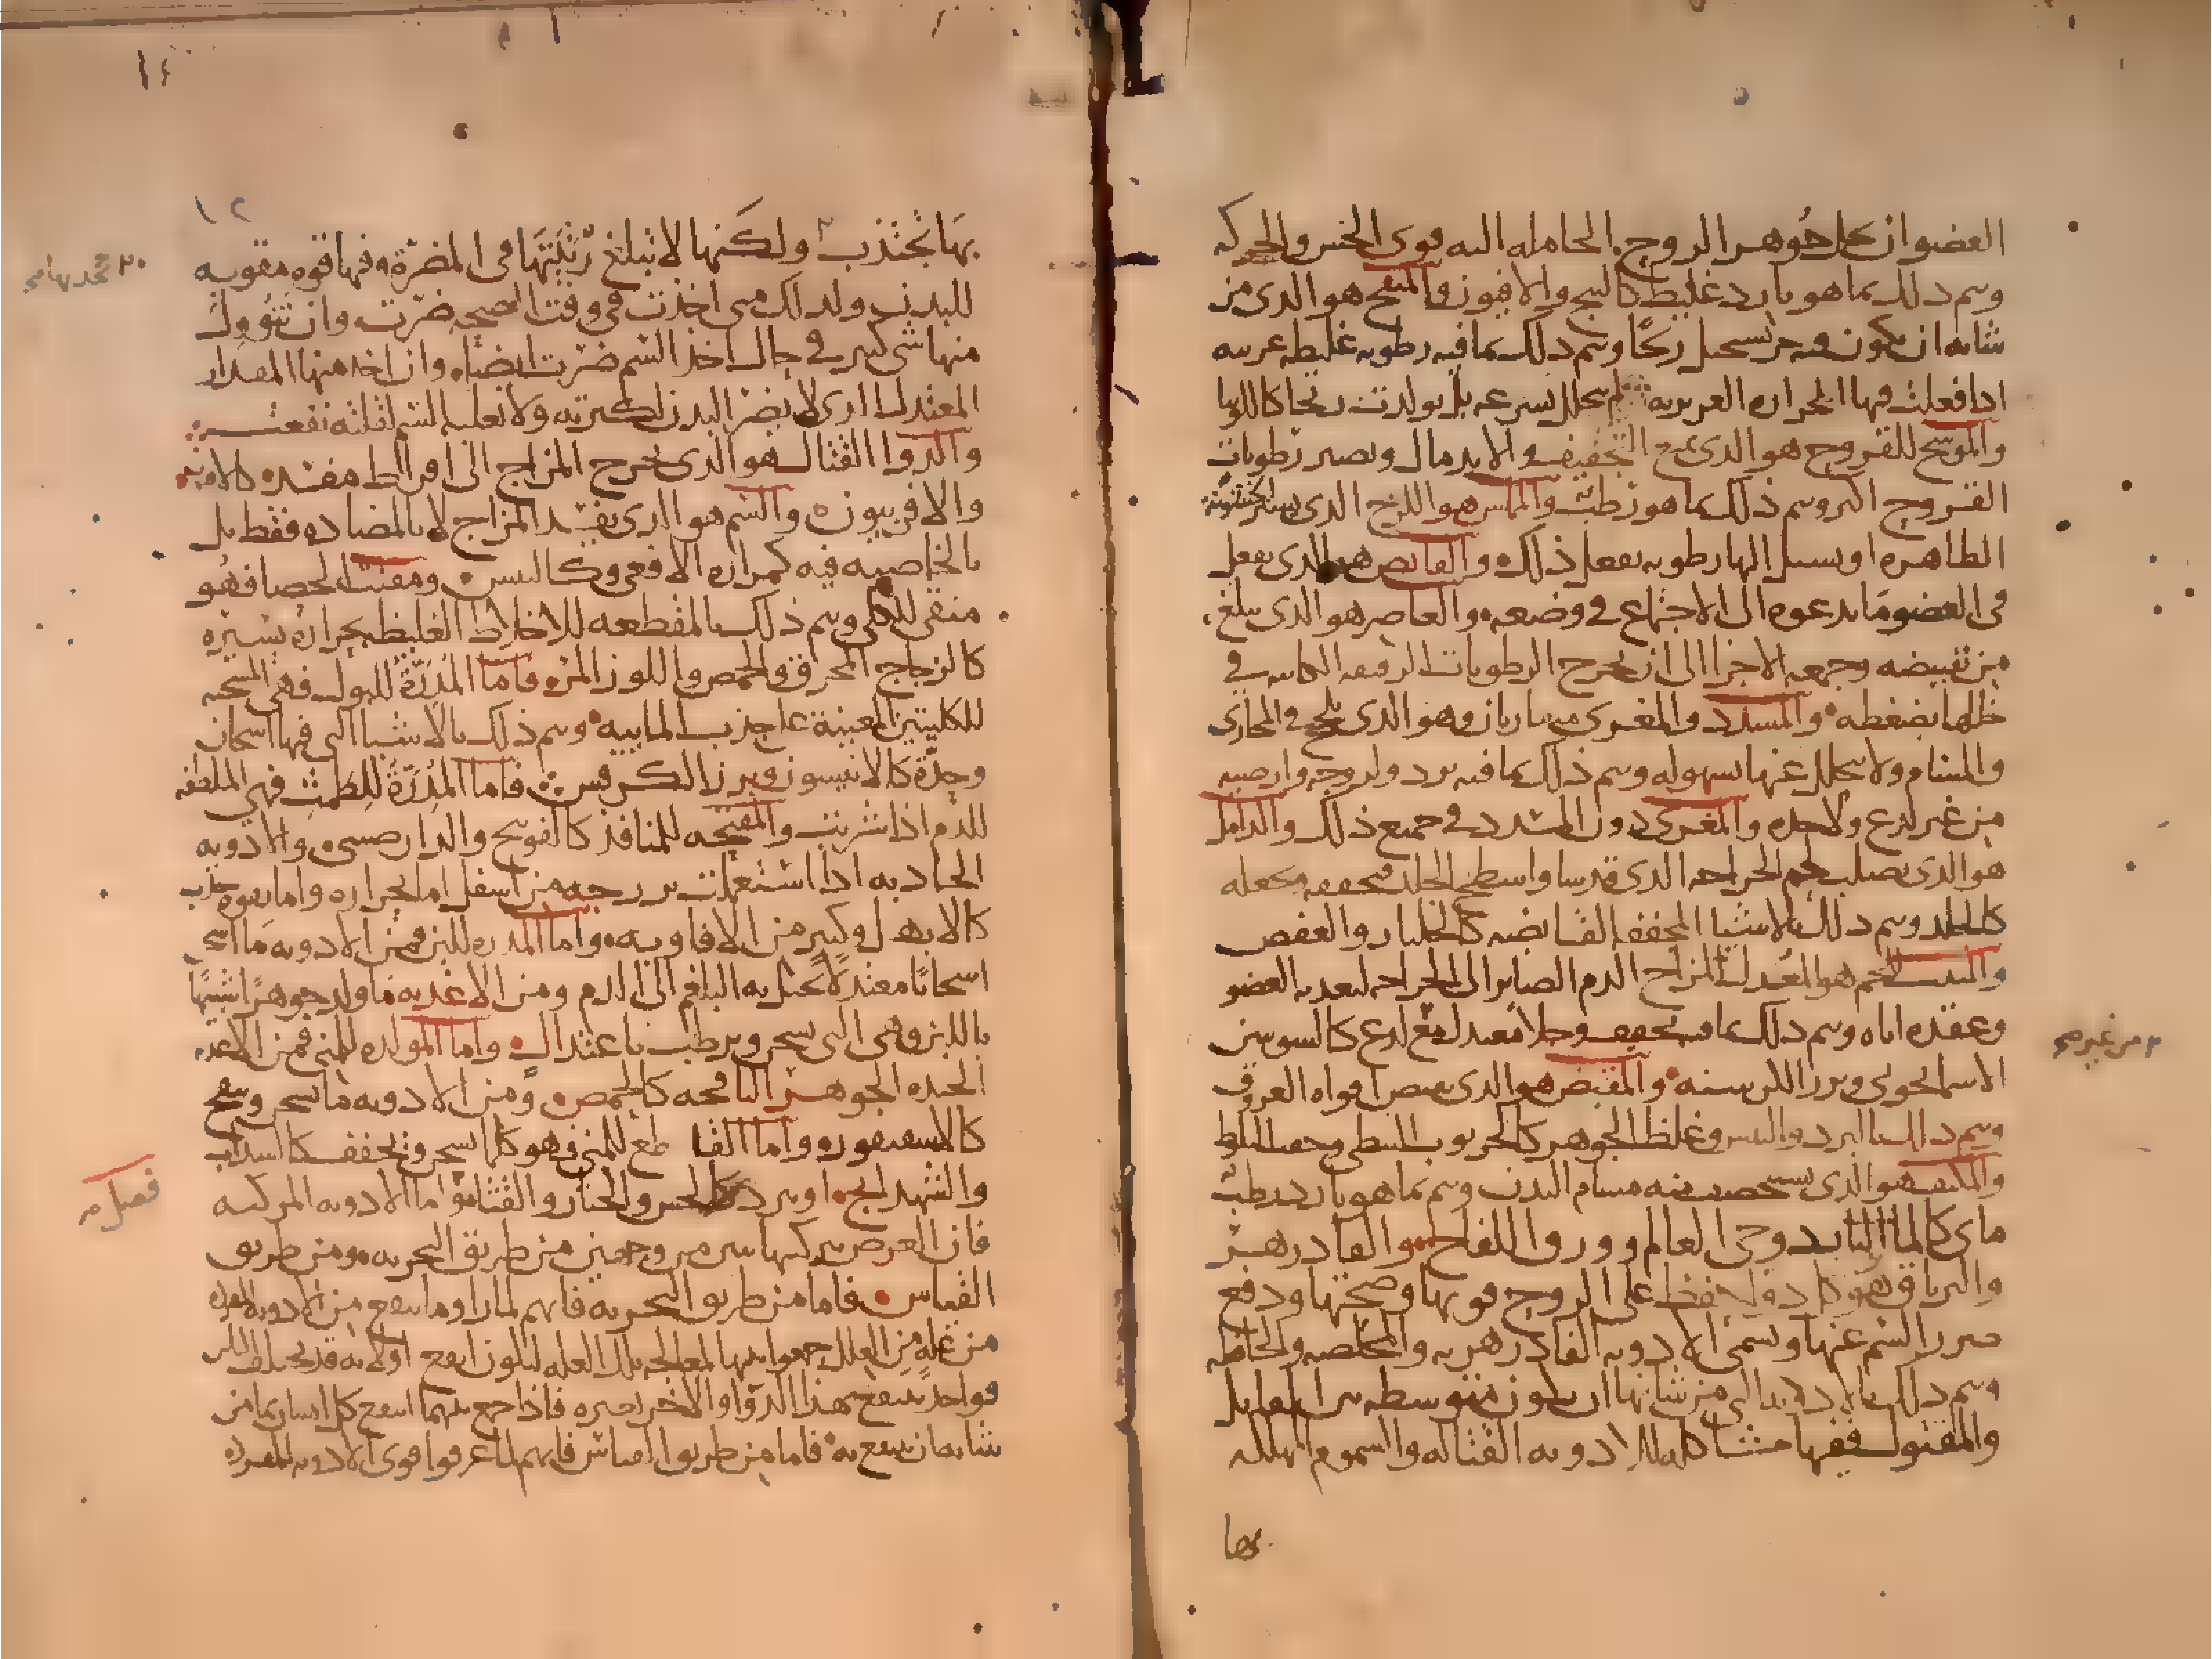 العضو ان كل جوهر الروح الحامله اليه قوى الحس والحركه
وسم ذلك بما هو بارد غليظ كالبنج والافيون والمنفخ هو الذى من
شانه ان يكون فيه جز يستحيل ريحا وسم ذلك بما فيه رطوبه غليظه غريبه
اذا فعلت فيها الحراره الغريزيه لم تتحلل بسرعه بل تولدت ريحا كاللوبيا
والموسخ للقروح هو الذى يمنع التجفيف والاندمال ويصير رطوبات
القروح اكثر وسم ذلك بما هو رطب والمملس هو اللزج الذى
الظاهره او يسيل اليها رطوبه يفعل ذلك والقابض هو الذى يفعل
فى العضو ما يدعوه الى الاجتماع فى وضعه والعاصر هو الذى يبلغ
من تقبيضه وجمعه الاجزا الى ان يخرج الرطوبات الرقيقه الكامنه فى
خللها بضغطه والمسدد والمغرى وهو الذى يلحج فى المجارى
والمسام ولا يتحلل عنها بسهوله وسم ذلك بما فيه برد ولزوجه وارضيه
من غير لذع ولا حده والمغرى دون المسدد فى جميع ذلك والدامل
هو الذى يصلب لحم الجراحه الذى قد ساوا سطح الجلد فيجففه ويجعله
كالجلد وسم ذلك بالاشيا المجففه القابضه كالجلنار والعفص
والمنبت للحم هو المعدل لمزاج الدم الصاير الى الجراحه لتغذيه العضو
وعقده اياه وسم ذلك بما فيه تجفيف وجلا معتدل مع لذع كالسوسن
الاسمانجونى وبزر الكرسنه والمقبض هو الذى يقبض افواه العروق
وسم ذلك بالبرد واليبس وغلظ الجوهر كالخرنوب النبطى وجفت البلوط
والمكثف هو الذى يستحصف منه مسام البدن وسم بما هو بارد رطب
ماى كالماء البارد وحى العالم وورق اللفاح والفادزهر
والترياق هو كل دوا يحفظ على الروح قوتها وصحتها ودفع
ضرر السم عنها وسمى الادويه الفادزهريه والمخلصه والحافظه
وسم ذلك بالادويه التى من شانها ان تكون متوسطه بين القابل
والمقتول ففيها مشاكله للادويه القتاله والسموم المهلكه
بها
من غير صح
١٢
١٤
بها تجتذب ولكنها لا تبلغ رتبتها فى المضرة وفيها قوه مقويه
للبدن ولذلك متى اخذت فى وقت الصحه ضرت وان تنوول
منها شى كثير فى حال اخذ السم ضرت ايضا وان اخذ منها المقدار
المعتدل الذى لا يضر البدن لكثرته ولا يغلبه السم لقلته نفعت
والدوا القتال هو الذى يخرج المزاج الى افراط مفسده كالافيون
والافربيون والسم هو الذى يفسد المزاج لا بالمضاده فقط بل
بالخاصيه فيه كمراره الافعى وكالبيش ومفتت الحصا فهو
منقى للكلى وسم ذلك بالمقطعه للاخلاط الغليظه بحراره يسيره
كالزجاج المحرق والحمص واللوز المر فاما المدرة للبول فهى المسخنه
للكليتين المعينة على جذب المايه وسم ذلك بالاشيا التى فيها اسخان
وحدة كالانيسون وبزر الكرفس فاما المدرة للطمث فهى الملطفه
للدم اذا شربت والمفتحه للمنافذ كالفوتنج والدارصينى والادويه
الجاذبه اذا استعملت من اسفل اما بحراره واما بقوه جذب
كالابهل وكثير من الافاويه واما المدره للبن فمن الادويه ما اسخن
اسخانا معتدلا يحيل به البلغم الى الدم ومن الاغذيه ما ولد جوهرا شبيها
باللبن وهى التى تسخن وترطب باعتدال واما المولده للمنى فمن الاغذيه
الجيده الجوهر النافخه كالحمص ومن الادويه ما يسخن وينفخ
كالاسقنقور واما القاطع للمنى فهو كلما يسخن ويجفف كالسداب
والشهدانج او يبرد كالخس والخيار والقثا واما الادويه المركبه
فان الغرض فى تركيبها من وجهين من طريق التجربه ومن طريق
القياس فاما من طريق التجربه فانهم لما راوا ما ينفع من الادويه المفرده
من علة من العلل جمعوا بينها لمعالجه تلك العله لتكون انفع اولانه قد يختلف الناس
فواحد ينتفع بهذا الدوا والاخر بغيره فاذا جمع بينهما انتفع كل انسان بما من
شانه ان ينتفع به فاما من طريق القياس فانهم لما عرفوا قوى الادويه المفرده
فصل